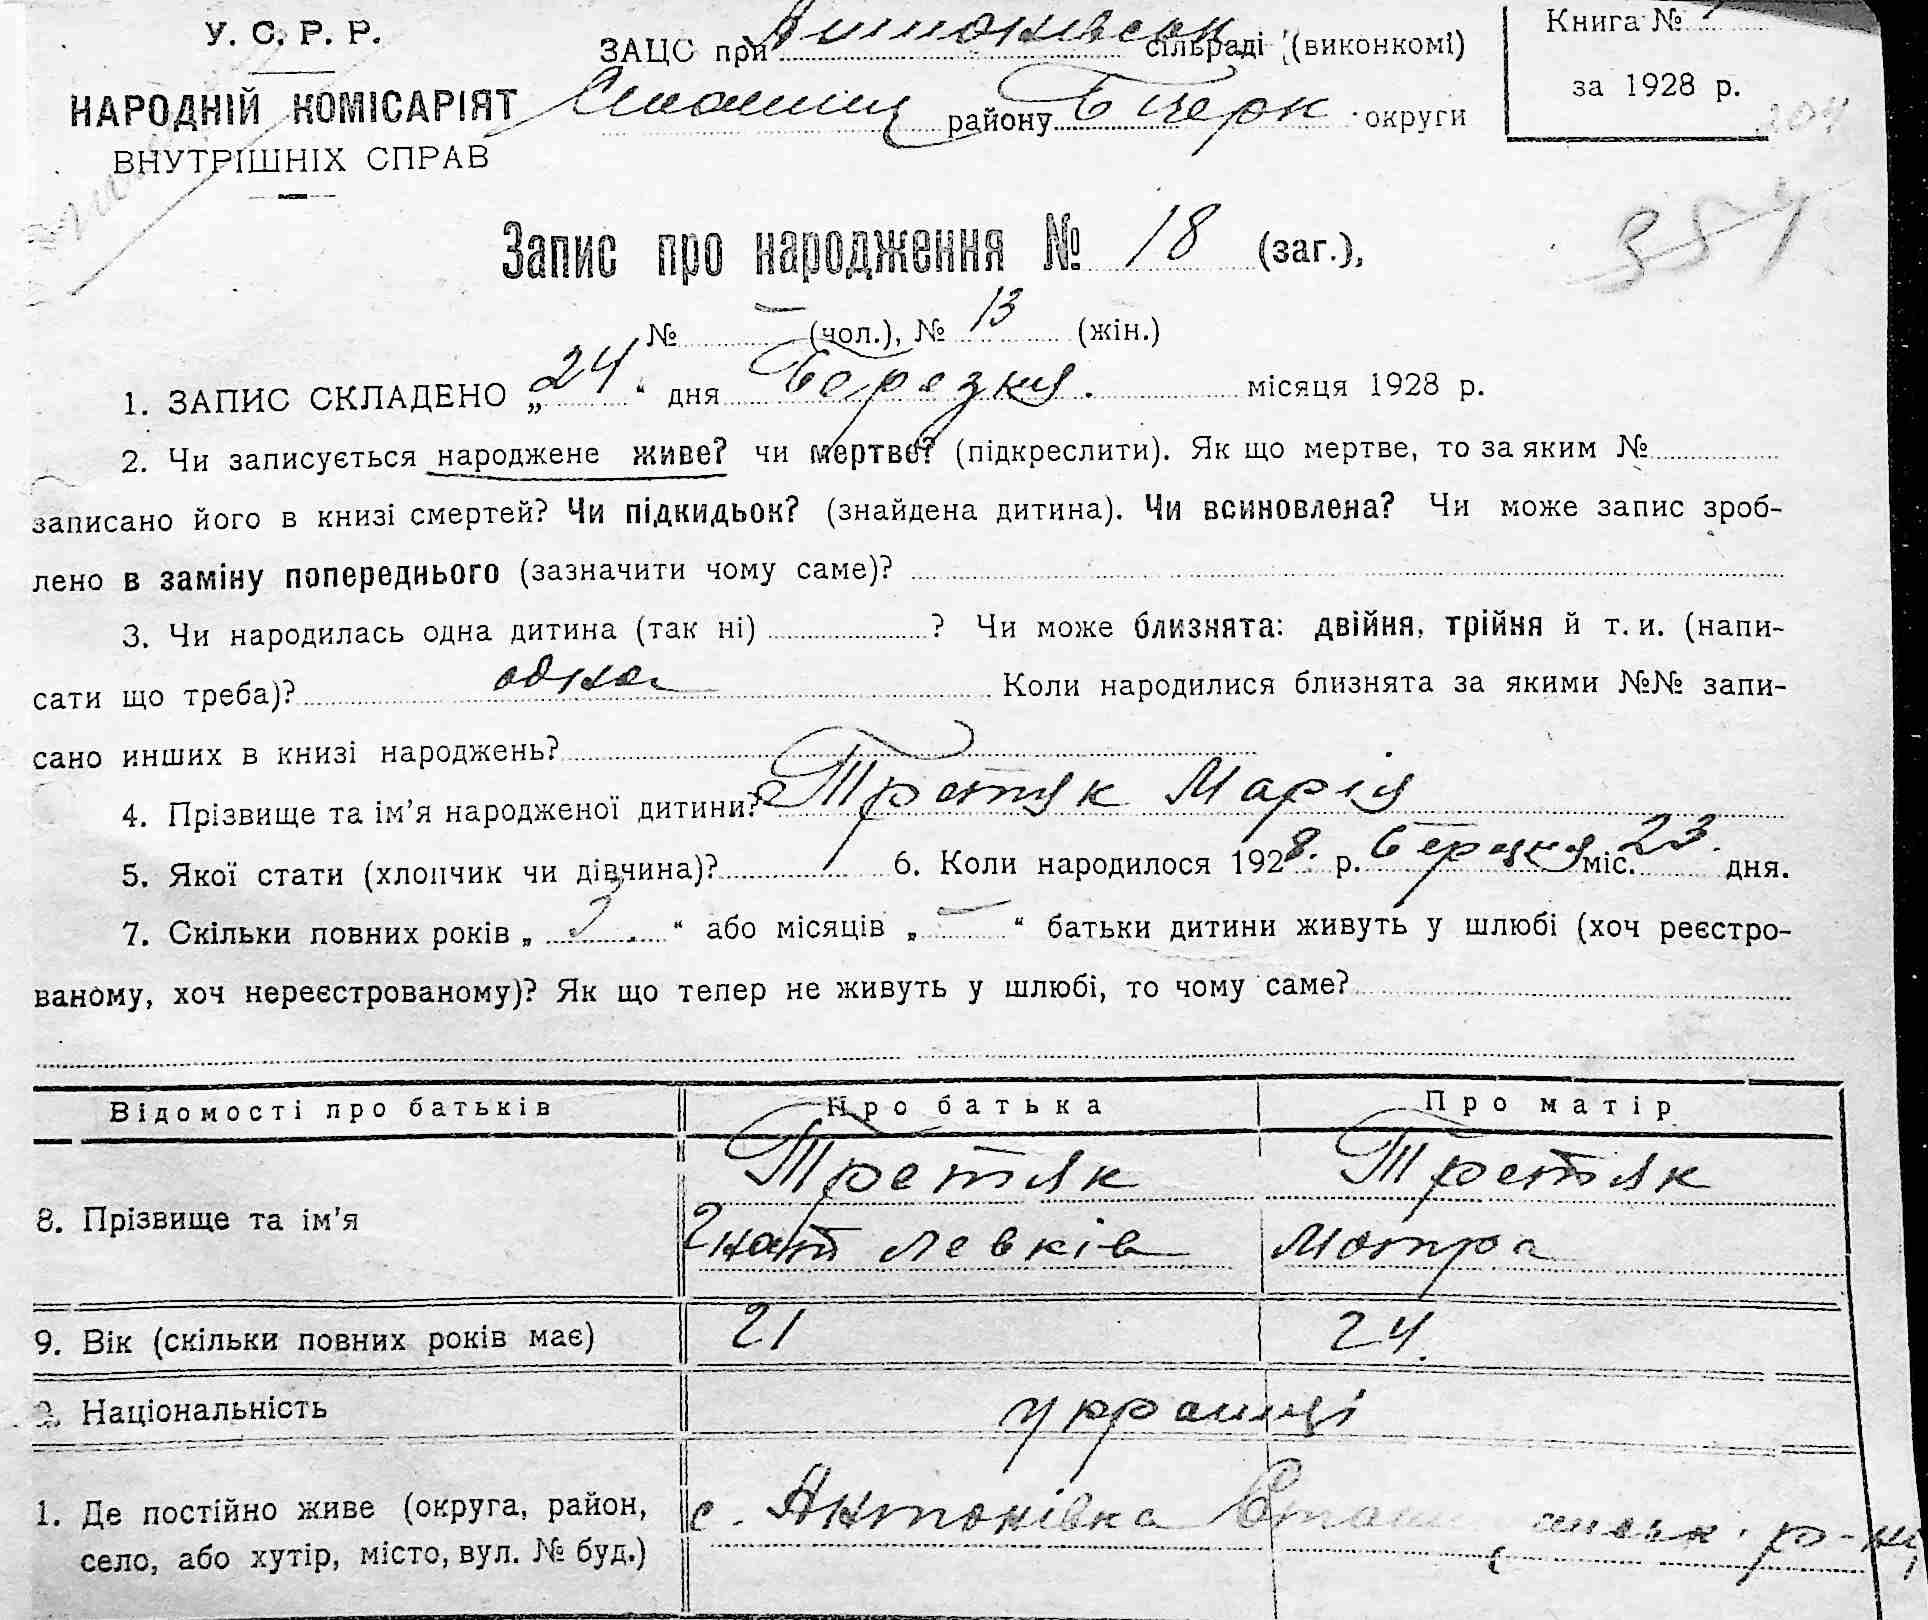 У. С. Р. Р.
НАРОДНІЙ КОМІСАРІЯТ
ВНУТРІШНІХ СПРАВ
ЗАЦС при Антонівськ сільраді (виконкомі)
району Б Церк округи
Книга №
за 1928 р.
204
354
Запис про народження № 18 (заг.),
№ — (чол.), № 13 (жін.)
1. ЗАПИС СКЛАДЕНО „24“ дня Березня. місяця 1928 р.
2. Чи записується народжене живе? чи мертве? (підкреслити). Як що мертве, то за яким №
записано його в книзі смертей? Чи підкидьок? (знайдена дитина). Чи всиновлена? Чи може запис зроб-
лено в заміну попереднього (зазначити чому саме)?
3. Чи народилась одна дитина (так ні) ? Чи може близнята: двійня, трійня й т. и. (напи-
сати що треба)? одна Коли народилися близнята за якими №№ запи-
сано инших в книзі народжень?
4. Прізвище та ім’я народженої дитини? Третяк Марія
5. Якої стати (хлопчик чи дівчина)? 6. Коли народилося 1928. р. березня міс. 23. дня.
7. Скільки повних років „ 3. “ або місяців „ — “ батьки дитини живуть у шлюбі (хоч реєстро-
ваному, хоч нереєстрованому)? Як що тепер не живуть у шлюбі, то чому саме?
Відомості про батьків Про батька Про матір
8. Прізвище та ім’я Третяк Гнат Левків Третяк Мотря
9. Вік (скільки повних років має) 21 24.
Національність українці
1. Де постійно живе (округа, район, с. Антонівка р-ну
село, або хутір, місто, вул. № буд.)